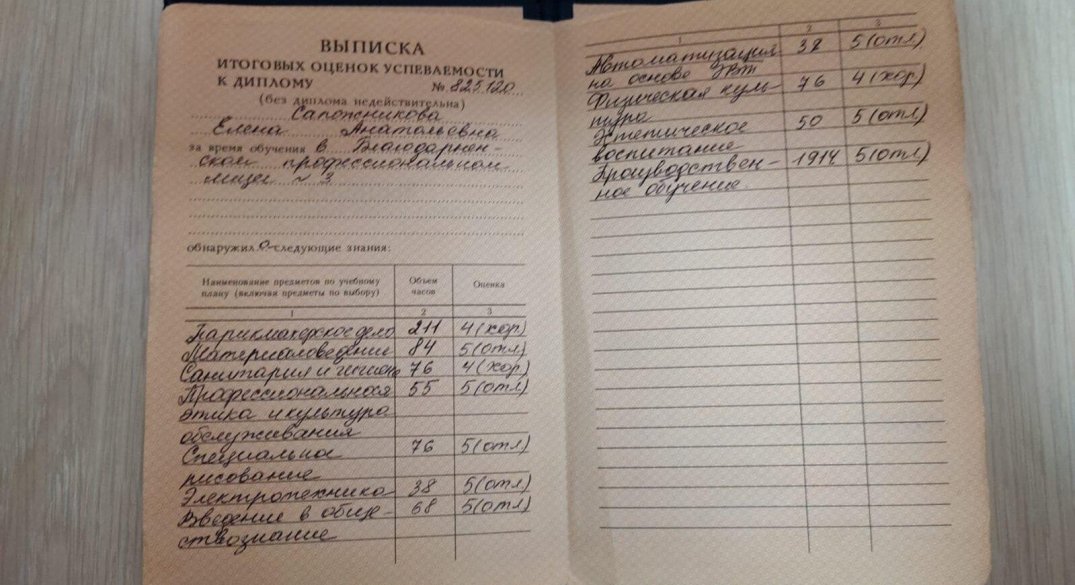 ВЫПИСКА
ИТОГОВЫХ ОЦЕНОК УСПЕВАЕМОСТИ
К ДИПЛОМУ № 825120
(без диплома недействительна)
Сапожникова
Елена Анатольевна
за время обучения в Благодарнен-
ском профессиональном
лицее № 3
обнаружила следующие знания:
Наименование предметов по учебному плану (включая предметы по выбору) Объем часов Оценка
1 2 3
Парикмахерское дело 211 4 (хор)
Материаловедение 84 5 (отл)
Санитария и гигиена 76 4 (хор)
Профессиональная 55 5 (отл)
этика и культура
обслуживания
Специальное 76 5 (отл)
рисование
Электротехника 38 5 (отл)
Введение в обще- 68 5 (отл)
ствознание
1 2 3
Автоматизация 38 5 (отл)
на основе ЭВТ
Физическая куль- 76 4 (хор)
тура
Эстетическое 50 5 (отл)
воспитание
Производствен- 1914 5 (отл)
ное обучение